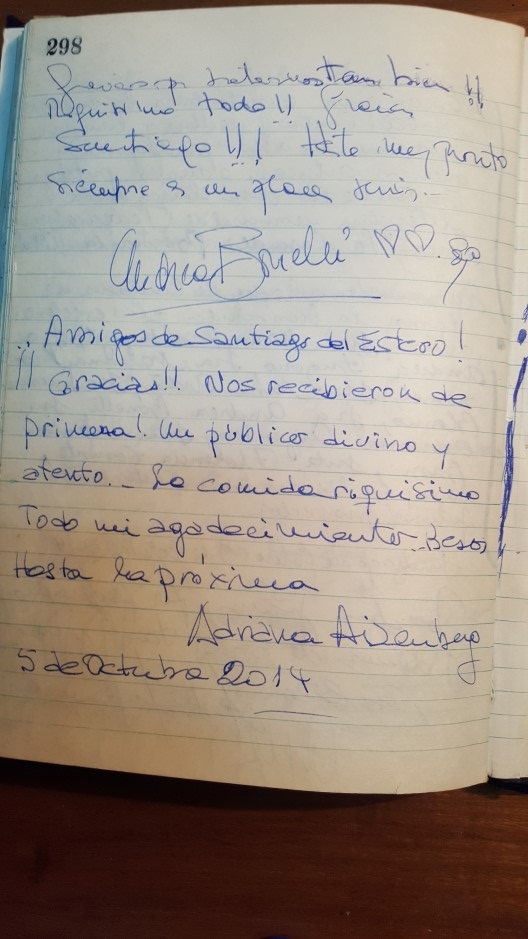 298
Gracias p tratarnos tan bien!!
Riquísimo todo!! Gracias
Santiago!!! Hasta muy pronto
Siempre es un placer venir.-
Andrea Bonelli
¡¡Amigos de Santiago del Estero!
¡¡Gracias!! Nos recibieron de
primera! Un público divino y
atento.- La comida riquísima
Todo mi agradecimiento. Besos
Hasta la próxima
Adriana Aizenberg
5 de Octubre 2014